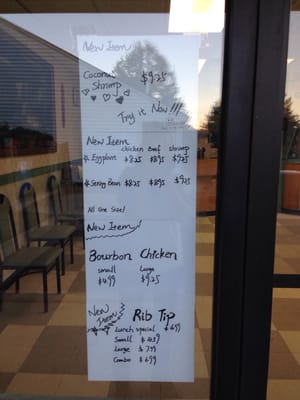 New Item
Coconut Shrimp $9.25
Try it Now!!!
New Item
chicken Beef shrimp
Eggplant $8.25 $8.95 $9.25
String Bean $8.25 $8.95 $9.25
All One Size!
New Item!
Bourbon Chicken
small Large
$4.99 $9.25
New Item Rib Tip
Lunch special $6.99
Small
Large $7.99
Combo $6.99